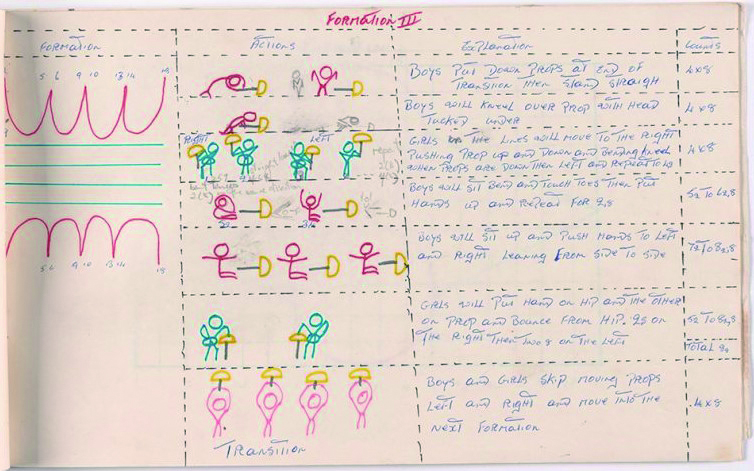 FORMATION III
FORMATION
ACTIONS
EXPLANATION
COUNTS
5 6 9 10 13 14 18
BOYS PUT DOWN PROPS AT END OF
TRANSITION THEN STAND STRAIGHT
4x8
BOYS WILL KNEEL OVER PROP WITH HEAD
TUCKED UNDER
4x8
RIGHT
LEFT
GIRLS IN THE LINES WILL MOVE TO THE RIGHT
PUSHING PROP UP AND DOWN AND BENDING KNEES
WHEN PROPS ARE DOWN THEN LEFT AND REPEAT TO
4x8
BOYS WILL SIT BEND AND TOUCH TOES THEN PUT
HANDS UP AND REPEAT FOR
BOYS WILL SIT UP AND PUSH HANDS TO LEFT
AND RIGHT LEANING FROM SIDE TO SIDE
5 6 9 10 13 14 18
GIRLS WILL PUT HAND ON HIP AND THE OTHER
ON PROP AND BOUNCE FROM HIP. ON
THE RIGHT THEN TWO 8 ON THE LEFT
TOTAL
BOYS AND GIRLS SKIP MOVING PROPS
LEFT AND RIGHT AND MOVE INTO THE
NEXT FORMATION
4x8
TRANSITION